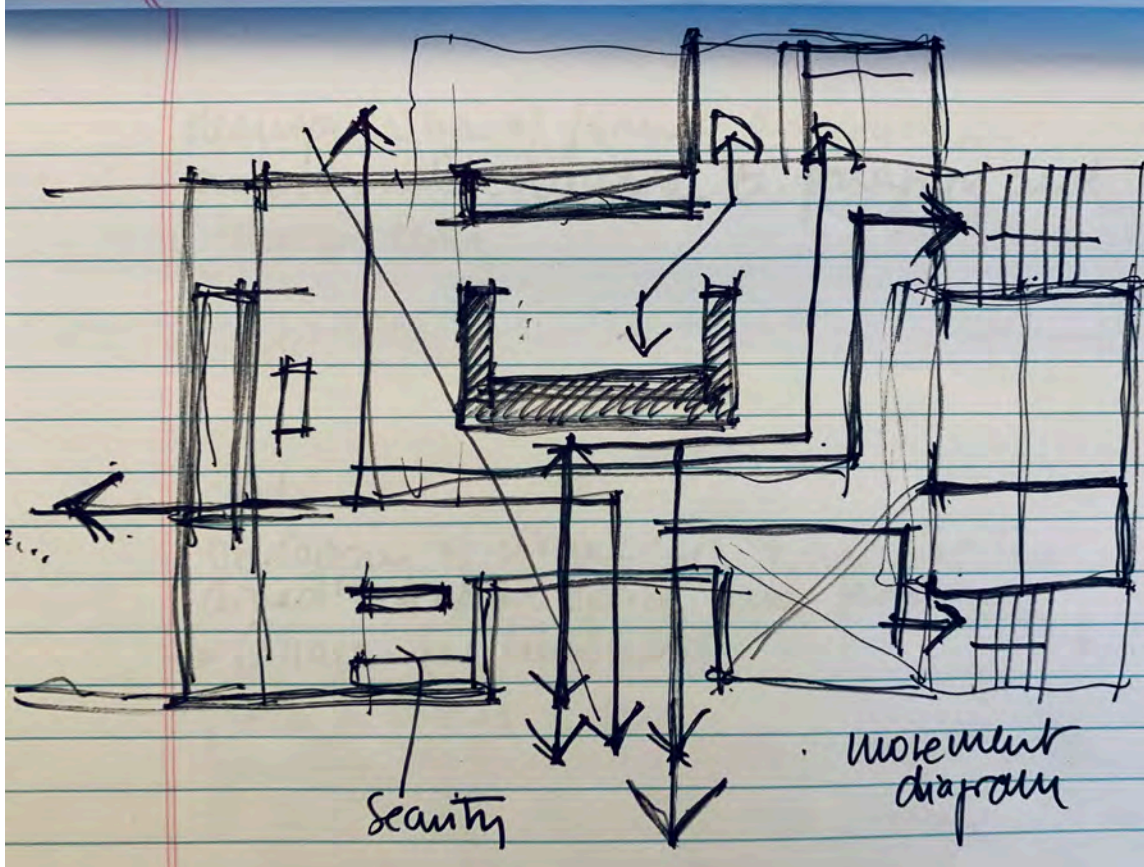 Security
movement
diagram